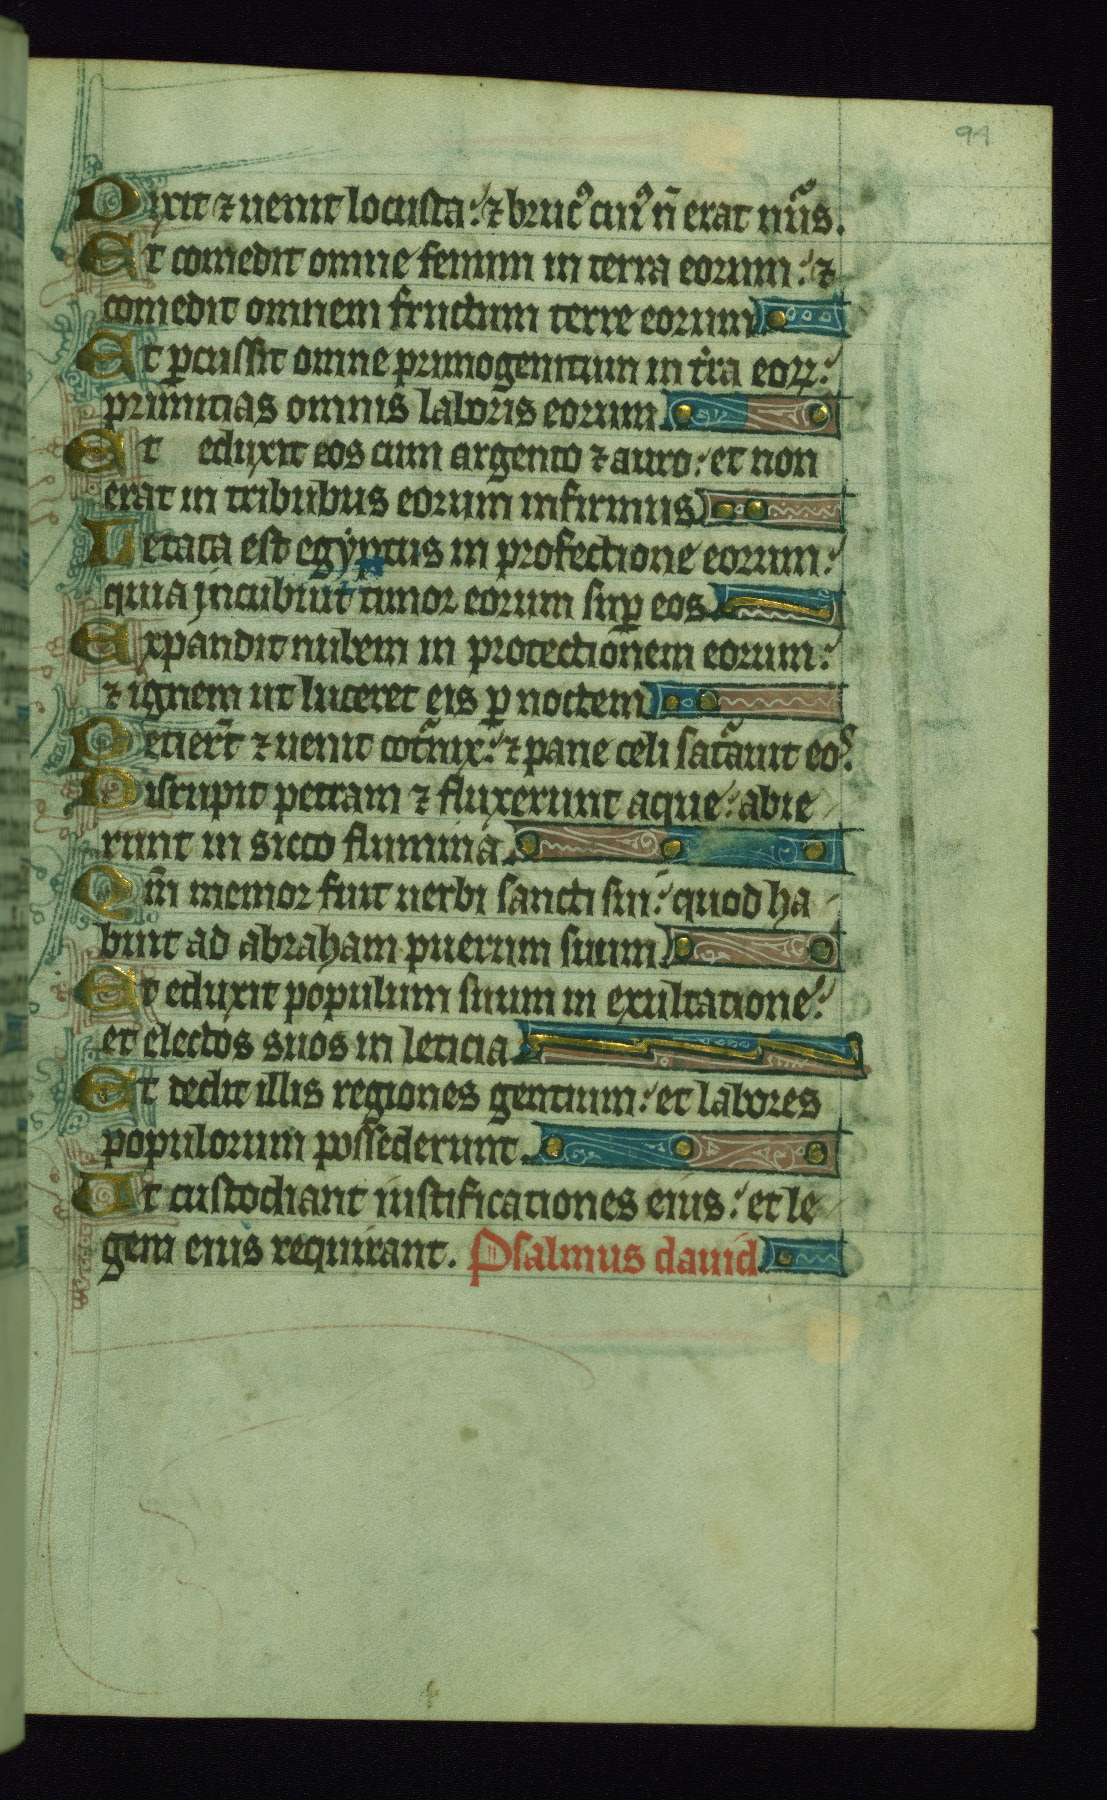 94
Dixit ⁊ uenit locusta: ⁊ bruc᷒ cui᷒ n̄ erat nūs.
Et comedit omne fenum in terra eorum: ⁊
comedit omnem fructum terre eorum
Et ꝑcussit omne primogenitum in t̄ra eoꝝ:
primitias omnis laboris eorum
Et eduxit eos cum argento ⁊ auro: et non
erat in tribubus eorum infirmus
Letata est egyptus in profectione eorum:
quia incubuit timor eorum suꝑ eos
Expandit nubem in protectionem eorum:
⁊ ignem ut luceret eis ꝑ noctem
Petier̄t ⁊ uenit cot̄nix: ⁊ pane celi sat̄auit eos.
Disrupit petram ⁊ fluxerunt aque: abie
runt in sicco flumina
Qm̄ memor fuit uerbi sancti sui: quod ha
buit ad abraham puerum suum
Et eduxit populum suum in exultatione:
et electos suos in leticia
Et dedit illis regiones gentium: et labores
populorum possederunt.
Ut custodiant iustificationes eius: et le
gem eius requirant. Psalmus dauid